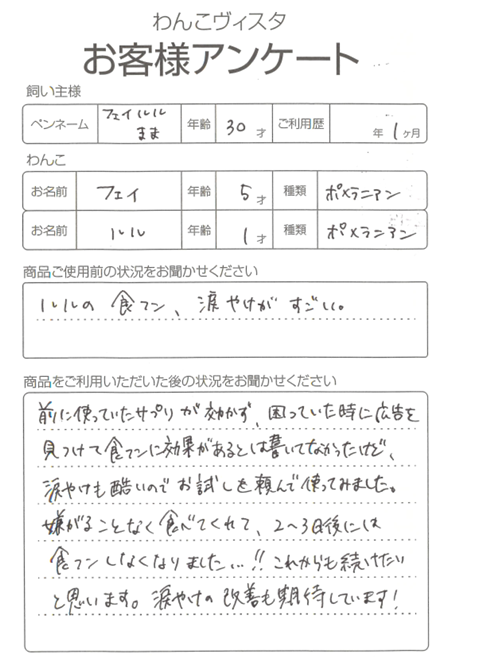 わんこヴィスタ
お客様アンケート
飼い主様
ペンネーム フェイルル まま 年齢 30才 ご利用歴 年 1ヶ月
わんこ
お名前 フェイ 年齢 5才 種類 ポメラニアン
お名前 ルル 年齢 1才 種類 ポメラニアン
商品ご使用前の状況をお聞かせください
ルルの食フン、涙やけがすごい。
商品をご利用いただいた後の状況をお聞かせください
前に使っていたサプリが効かず、困っていた時に広告を
見つけて食フンに効果があるとは書いてなかったけど、
涙やけも酷いのでお試しを頼んで使ってみました。
嫌がることなく食べてくれて、2〜3日後には
食フンしなくなりました...!! これからも続けたい
と思います。涙やけの改善も期待しています!